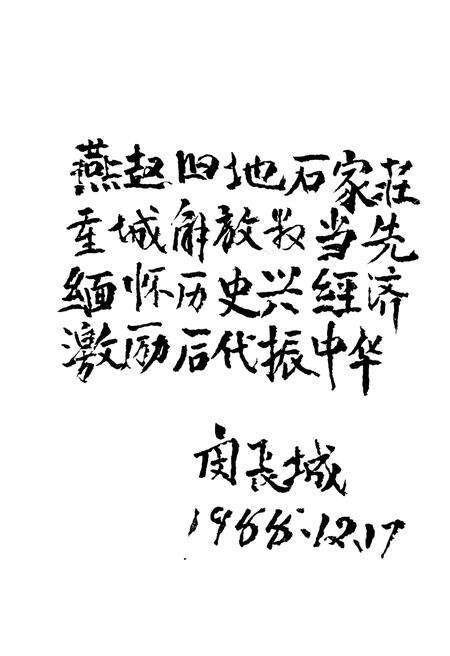 燕赵旧地石家莊
重城解放数当先
缅怀历史兴經济
激励后代振中华
闵長城
1988.12.17